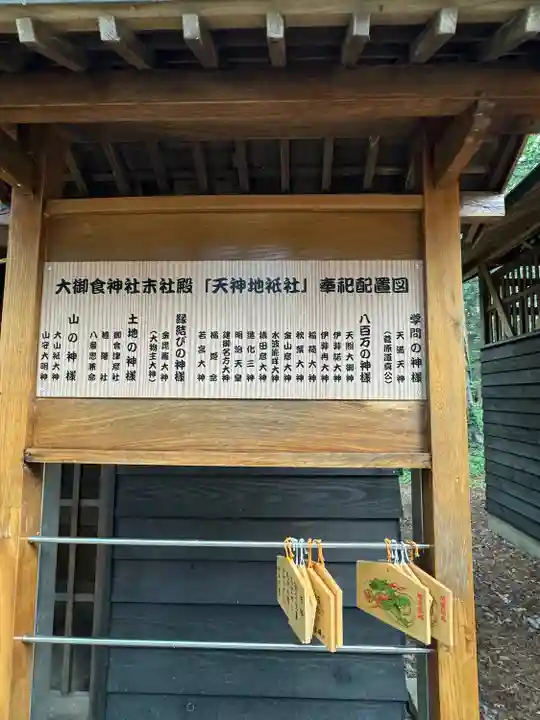 大御食神社末社殿「天神地祇社」奉祀配置図
学問の神様
天満天神
(菅原道真公)
八百万の神様
天照大御神
伊弉諾大神
伊弉冉大神
稲荷大神
秋葉大神
金山彦大神
水波能咩大神
猿田彦大神
造化三神
明治天皇
建御名方大神
橘姫命
若宮大神
縁結びの神様
金毘羅大神
(大物主大神)
土地の神様
御食津彦社
八意思兼命
山の神様
大山祇大神
山守大明神